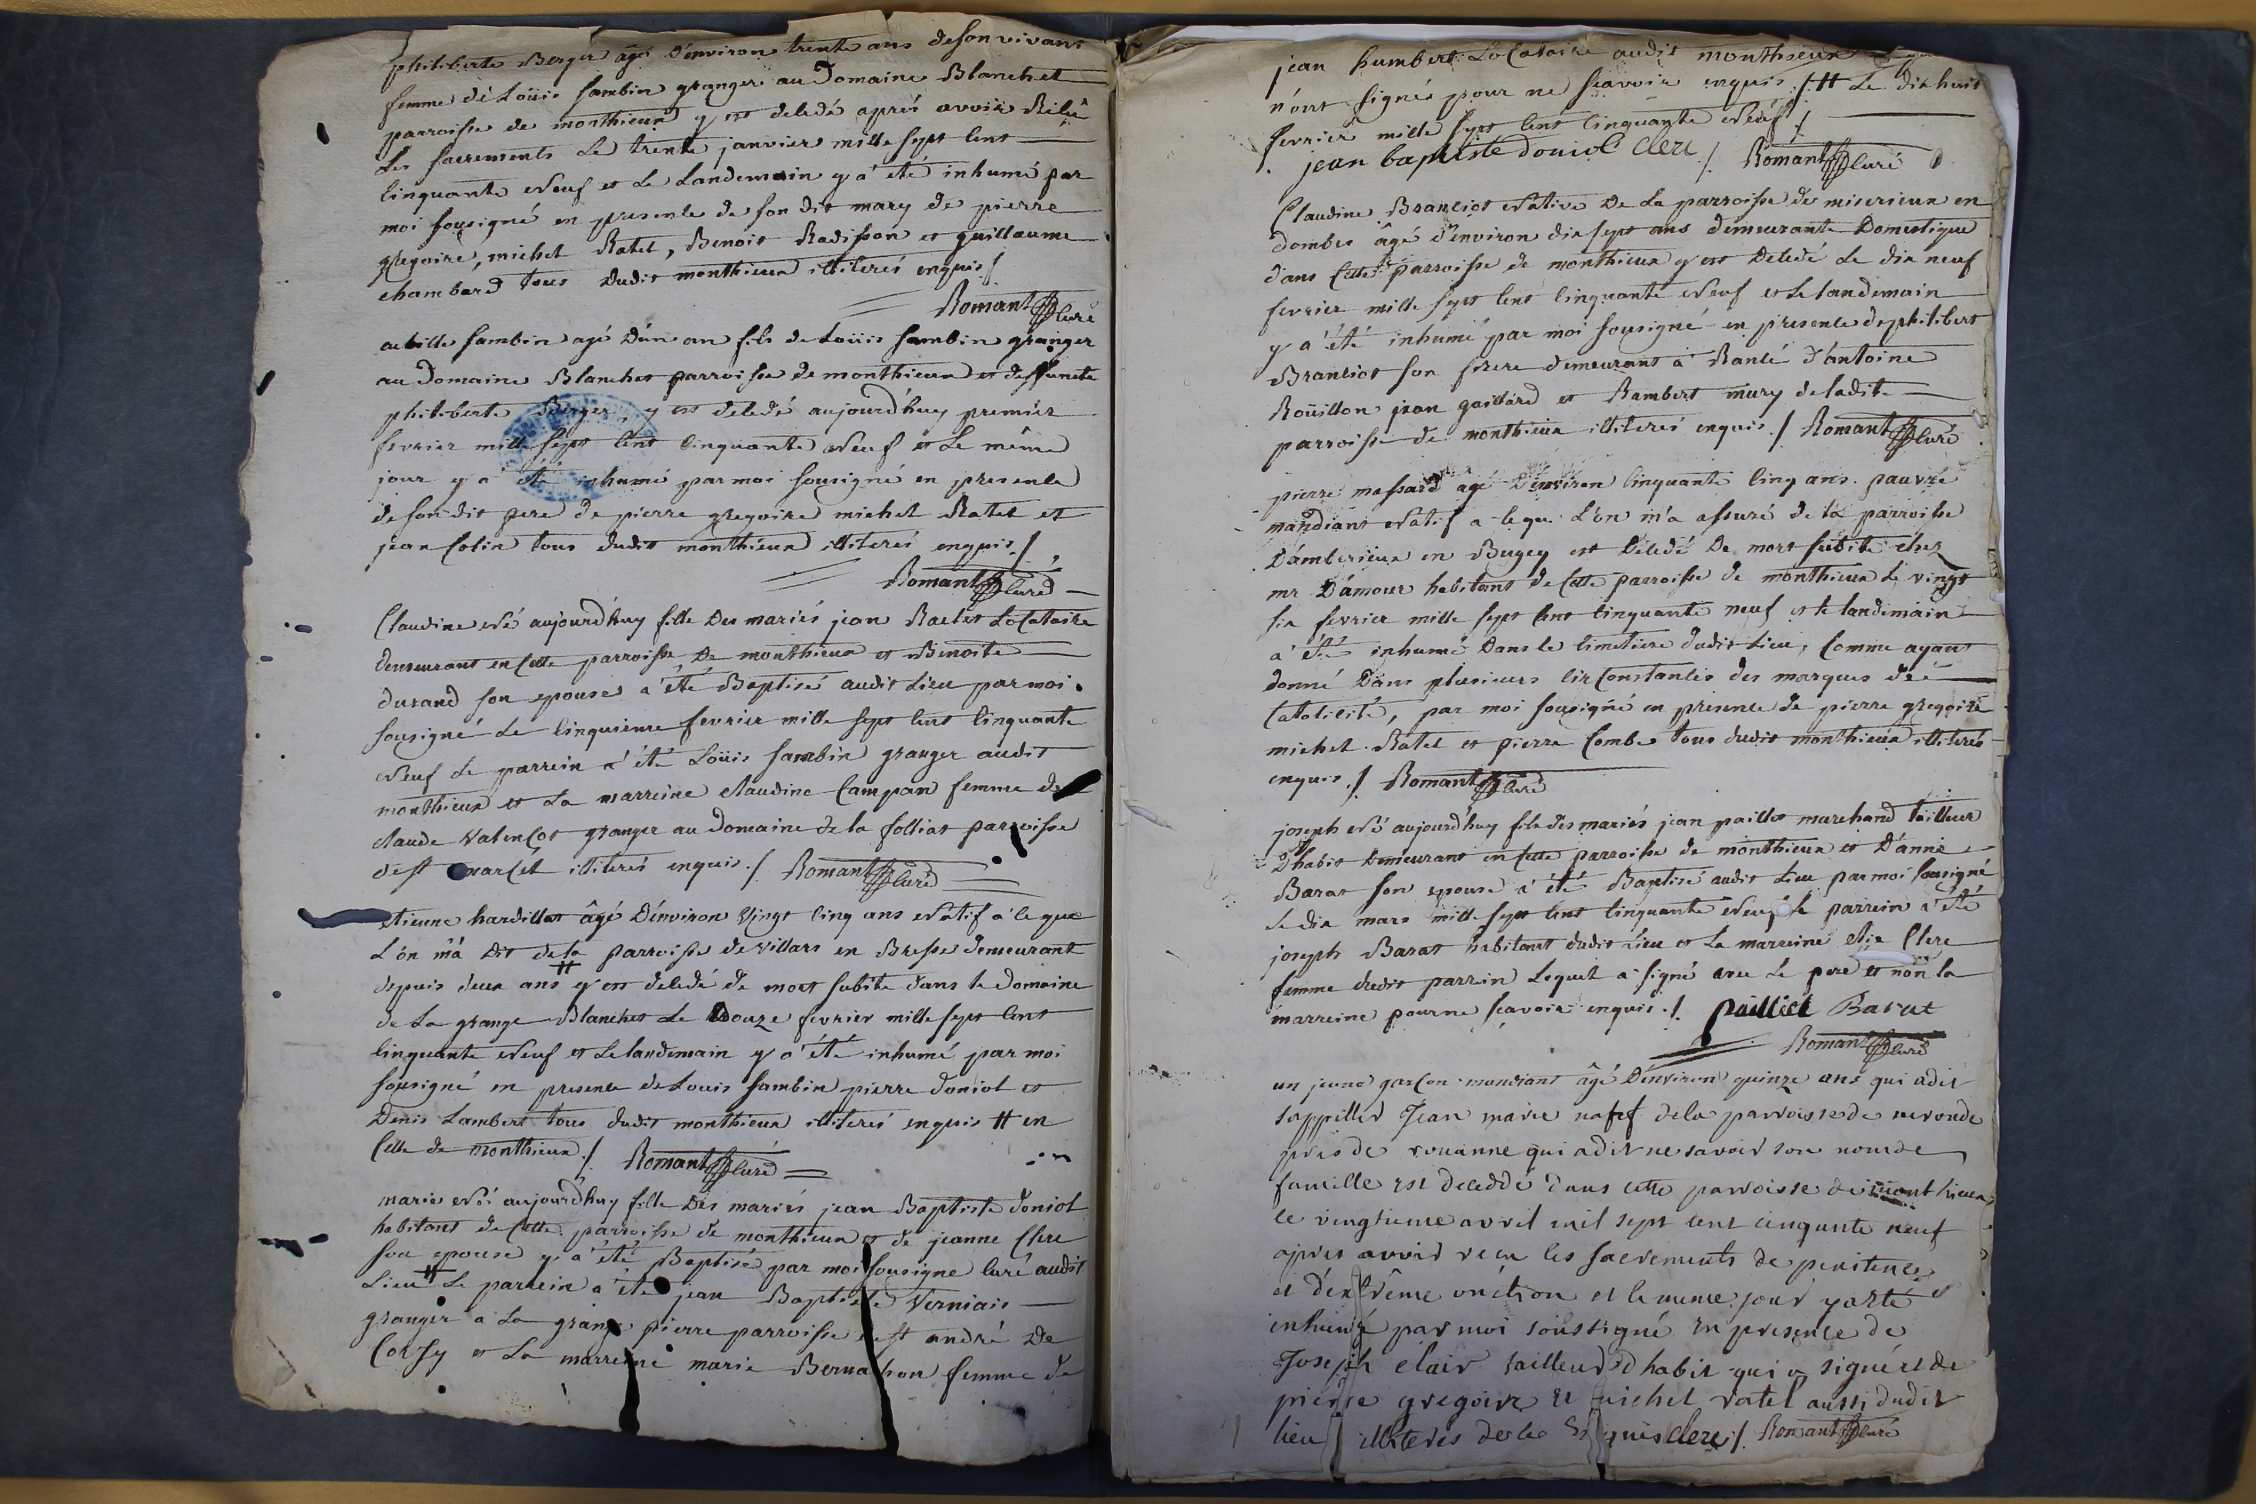 philiberte Berger agé d'environ trente ans de son vivant
femme de Loüis Sambin granger au Domaine Blanchet
parroisse de monthieux y est decedé aprés avoir
Les sacrements Le trente janvier mille sept cent
cinquante Neuf et Le Landemain y a été inhumé par
moi sousigné en presence de son dit mary de pierre
gregoire, michel Ratet, Benoit Radisson et guillaume
chambard tous dudit monthieux illiterés enquis /
Romant Curé
Sambin agé d'un an fils de Loüis Sambin granger
au Domaine Blanchet parroisse de monthieux et deffuncte
philiberte Berger, y est decedé aujourd'huy premier
fevrier mille sept cent cinquante Neuf et Le même
jour y a été inhumé par moi sousigné en presence
de son dit pere de pierre gregoire michel Ratet et
jean Colin tous dudit monthieux illiterés enquis /
Romant Curé
Claudine Né aujourd'huy fille Des mariés jean Ratet LoCataire
demeurant en Cette parroisse De monthieux et Benoite
durand son epouse a été Baptisé audit Lieu par moi
sousigné Le cinquieme fevrier mille sept cent cinquante
Neuf Le parrein a été Loüis Sambin granger audit
monthieux et La marreine claudine Campan femme de
claude ValenCot granger au domaine de la folliat parroisse
de st marCel illiterés enquis / Romant Curé
etienne hardillat âgé D'environ Vingt cinq ans Natif a ce que
L'on m'a Dit de la parroisse de villars en Bresse demeurant
depuis deux ans # y est decedé de mort subite dans le Domaine
de La grange Blanchet Le Douze fevrier mille sept cent
cinquante Neuf et Le landemain y a été inhumé par moi
sousigné en presence de Louis Sambin pierre doniol et
Denis Lambert tous dudit monthieux illiterés enquis # en
Celle de monthieux / Romant Curé
marie Né aujourd'huy fille Des mariés jean Baptiste doniol
habitant de Cette parroisse de monthieux et de jeanne Clerc
son epouse y a été Baptisé par moi sousigné Curé audit
Lieu # Le parrein a été jean Baptiste Verniais
granger a La grange pierre parroisse de st andré De
Corsy et La marreine marie Bernachon femme de
jean humbert LoCataire audit monthieux
n'ont signé pour ne scavoir enquis / # Le dix huit
fevrier mille sept cent cinquante Neuf /
jean baptiste doniol Clerc / Romant Curé
Claudine Branciot Native De La parroisse de miserieux en
dombes âgé d'environ dix sept ans demeurante Domestique
dans Cette parroisse de monthieux y est Decedé Le dix neuf
fevrier mille sept cent cinquante Neuf et Le landemain
y a été inhumé par moi sousigné en presence de philibert
Branciot son frere demeurant a Rancé d'antoine
Roüillon jean gaillard et Rambert mury de ladite
parroisse de monthieux illiterés enquis / Romant Curé
pierre massard agé D'environ cinquante cinq ans pauvre
mandiant Natif a ce que L'on m'a assuré de la parroisse
D'amberieux en Bugey est Decedé De mort subite chez
mr D'amour habitant de Cette parroisse de monthieux Le vingt
six fevrier mille sept cent cinquante neuf et le landemain
a été inhumé Dans le Cimetiere dudit Lieu, Comme ayant
donné Dans plusieurs CirConstances des marques de
Catolicité, par moi sousigné en presence de pierre gregoire
michel Ratet et pierre Combe tous dudit monthieux illiterés
enquis / Romant Curé
joseph Né aujourd'huy fils des mariés jean paillet marchand tailleur
D'habit Demeurant en Cette parroisse de monthieux et D'anne
Barat son epouse a été Baptisé audit Lieu par moi sousigné
Le dix mars mille sept cent cinquante Neuf le parrein a été
joseph Barat habitant dudit Lieu et La marreine Clerc
femme dudit parrein Lequel a signé avec Le pere et non la
marreine pour ne scavoir enquis / pailliet Barat
Romant Curé
un jeune garCon mandiant âgé D'environ quinze ans qui a dit
s'appeller Jean marie natif de la parroisse de neronde
près de rouanne qui a dit ne savoir son nom de
famille est deceddé dans cette parroisse de monthieux
le vingtieme avril mil sept cent cinquante neuf
apres avoir recu les sacrements de penitence
et d'extrême onction et le meme jour y a été
inhumé par moi soussigné en presence de
Joseph clair tailleur d'habit qui a signé et de
pierre gregoire et michel ratet aussi dudit
lieu illiterés de ce enquis Clerc / Romant Curé